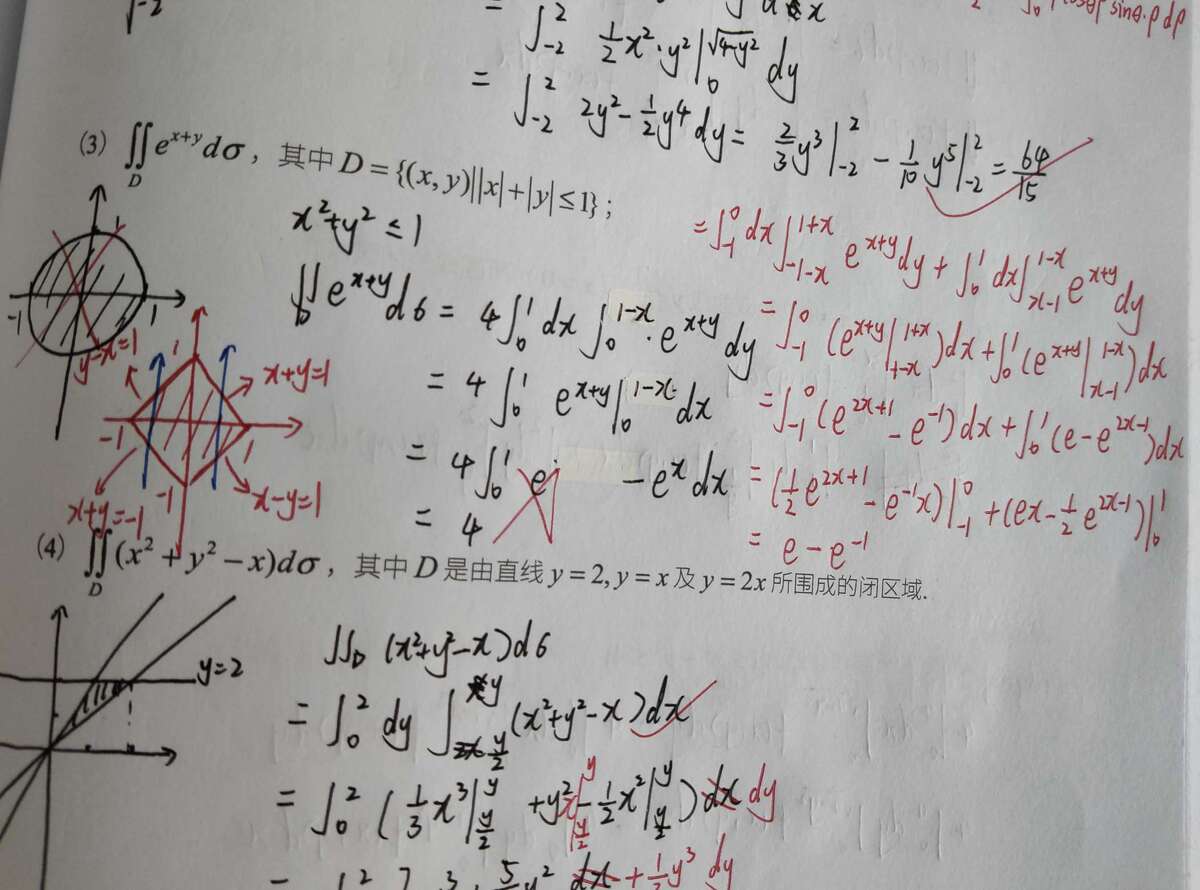 = ∫₋₂² ½x²·y²|₀^√(4-y²) dy
= ∫₋₂² 2y² - ½y⁴ dy = ⅔y³|₋₂² - 1/10 y⁵|₋₂² = 64/15
(3) ∬_D e^{x+y}dσ，其中 D = {(x, y)||x|+|y|≤1}；
x²+y² ≤ 1
∬_D e^{x+y}d6 = 4∫₀¹ dx ∫₀^{1-x}·e^{x+y} dy
= 4∫₀¹ e^{x+y}|₀^{1-x} dx
= 4∫₀¹ e - eˣ dx
= 4
= ∫₋₁⁰ dx ∫_{-1-x}^{1+x} e^{x+y}dy + ∫₀¹ dx∫_{x-1}^{1-x} e^{x+y} dy
= ∫₋₁⁰ (e^{x+y}|_{-1-x}^{1+x})dx + ∫₀¹ (e^{x+y}|_{x-1}^{1-x})dx
= ∫₋₁⁰ (e^{2x+1} - e⁻¹)dx + ∫₀¹ (e - e^{2x-1})dx
= (½e^{2x+1} - e⁻¹x)|₋₁⁰ + (ex - ½e^{2x-1})|₀¹
= e - e⁻¹
-1
1
y-x=1
1
x+y=1
-1
1
x+y=-1
-1
x-y=1
(4) ∬_D (x² + y² - x)dσ，其中 D 是由直线 y = 2, y = x 及 y = 2x 所围成的闭区域.
y=2
∬_D (x²+y²-x)d6
= ∫₀² dy ∫_{y/2}^{y} (x²+y²-x)dx
= ∫₀² (⅓x³|_{y/2}^{y} + y²x|_{y/2}^{y} - ½x²|_{y/2}^{y}) dx dy